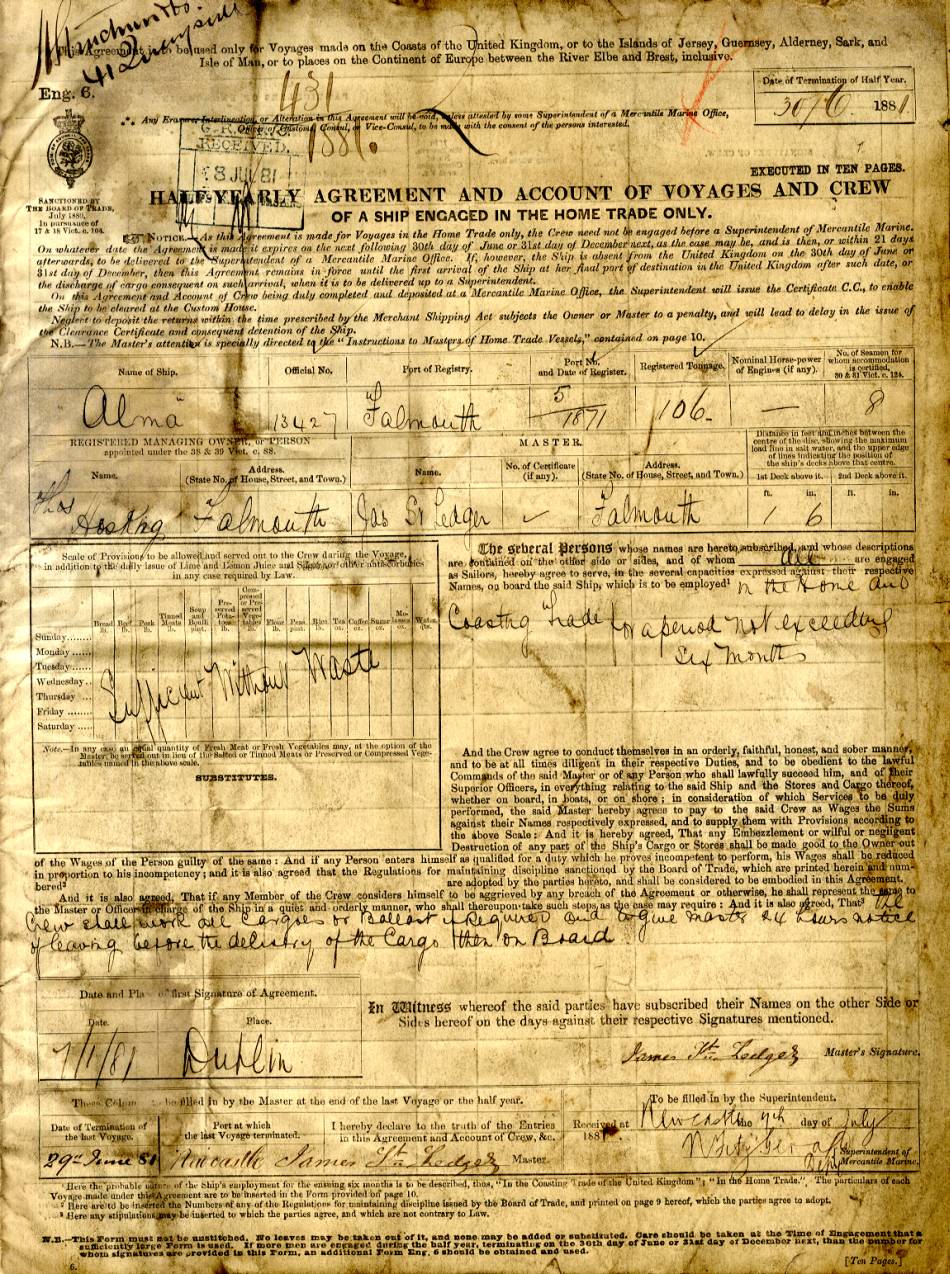 This Agreement is to be used only for Voyages made on the Coasts of the United Kingdom, or to the Islands of Jersey, Guernsey, Alderney, Sark, and
Isle of Man, or to places on the Continent of Europe between the River Elbe and Brest, inclusive.
Eng. 6.
431
1881.
Date of Termination of Half Year.
30/6 1881
Any Erasure, Interlineation, or Alteration in this Agreement will be void, unless attested by some Superintendent of a Mercantile Marine Office,
Officer of Customs, Consul, or Vice-Consul, to be made with the consent of the persons interested.
RECEIVED.
8 JUL 81
EXECUTED IN TEN PAGES.
SANCTIONED BY
THE BOARD OF TRADE,
July 1880,
In pursuance of
17 & 18 Vict. c. 104.
HALF-YEARLY AGREEMENT AND ACCOUNT OF VOYAGES AND CREW
OF A SHIP ENGAGED IN THE HOME TRADE ONLY.
NOTICE.—As this Agreement is made for Voyages in the Home Trade only, the Crew need not be engaged before a Superintendent of Mercantile Marine.
On whatever date the Agreement is made it expires on the next following 30th day of June or 31st day of December next, as the case may be, and is then, or within 21 days
afterwards, to be delivered to the Superintendent of a Mercantile Marine Office. If, however, the Ship is absent from the United Kingdom on the 30th day of June or
31st day of December, then this Agreement remains in force until the first arrival of the Ship at her final port of destination in the United Kingdom after such date, or
the discharge of cargo consequent on such arrival, when it is to be delivered up to a Superintendent.
On this Agreement and Account of Crew being duly completed and deposited at a Mercantile Marine Office, the Superintendent will issue the Certificate C.C., to enable
the Ship to be cleared at the Custom House.
Neglect to deposit the returns within the time prescribed by the Merchant Shipping Act subjects the Owner or Master to a penalty, and will lead to delay in the issue of
the Clearance Certificate and consequent detention of the Ship.
N.B.—The Master's attention is specially directed to the "Instructions to Masters of Home Trade Vessels," contained on page 10.
Name of Ship. Official No. Port of Registry. Port No. and Date of Register. Registered Tonnage. Nominal Horse-power of Engines (if any). No. of Seamen for whom accommodation is certified, 30 & 31 Vict. c. 124.
Alma 13427 Falmouth 5/1871 106 — 8
REGISTERED MANAGING OWNER, or PERSON
appointed under the 38 & 39 Vict. c. 88.
MASTER.
Distance in feet and inches between the
centre of the disc, showing the maximum
load line in salt water, and the upper edge
of lines indicating the position of
the ship's decks above that centre.
Name. Address. (State No. of House, Street, and Town.) Name. No. of Certificate (if any). Address. (State No. of House, Street, and Town.) 1st Deck above it. 2nd Deck above it.
ft. in. ft. in.
Thos Hosking Falmouth Jas St Ledger Falmouth 1 6
Scale of Provisions to be allowed and served out to the Crew during the Voyage,
in addition to the daily issue of Lime and Lemon Juice and Sugar, or other anti-scorbutics
in any case required by Law.
Sunday
Monday
Tuesday
Wednesday
Thursday
Friday
Saturday
Sufficient Without Waste
Note.—In any case an equal quantity of Fresh Meat or Fresh Vegetables may, at the option of the
Master, be served out in lieu of the Salted or Tinned Meats or Preserved or Compressed Vegetables
named in the above scale.
SUBSTITUTES.
The several Persons whose names are hereto subscribed, and whose descriptions
are contained on the other side or sides, and of whom all are engaged
as Sailors, hereby agree to serve, in the several capacities expressed against their respective
Names, on board the said Ship, which is to be employed¹ in the Home and
Coasting Trade for a period not exceeding
Six Months
And the Crew agree to conduct themselves in an orderly, faithful, honest, and sober manner,
and to be at all times diligent in their respective Duties, and to be obedient to the lawful
Commands of the said Master or of any Person who shall lawfully succeed him, and of their
Superior Officers, in everything relating to the said Ship and the Stores and Cargo thereof,
whether on board, in boats, or on shore; in consideration of which Services to be duly
performed, the said Master hereby agrees to pay to the said Crew as Wages the Sums
against their Names respectively expressed, and to supply them with Provisions according to
the above Scale: And it is hereby agreed, That any Embezzlement or wilful or negligent
Destruction of any part of the Ship's Cargo or Stores shall be made good to the Owner out
of the Wages of the Person guilty of the same: And if any Person enters himself as qualified for a duty which he proves incompetent to perform, his Wages shall be reduced
in proportion to his incompetency; and it is also agreed that the Regulations for maintaining discipline sanctioned by the Board of Trade, which are printed herein and num-
bered² are adopted by the parties hereto, and shall be considered to be embodied in this Agreement.
And it is also agreed, That if any Member of the Crew considers himself to be aggrieved by any breach of the Agreement or otherwise, he shall represent the same to
the Master or Officer in charge of the Ship in a quiet and orderly manner, who shall thereupon take such steps, as the case may require: And it is also agreed, That³ the
Crew shall work all Cargoes or Ballast if Required and to give master 24 hours notice
of leaving before the delivery of the Cargo then on Board
Date and Place of first Signature of Agreement.
Date. Place.
7/1/81 Dublin
In Witness whereof the said parties have subscribed their Names on the other Side or
Sides hereof on the days against their respective Signatures mentioned.
James St. Ledger Master's Signature.
These Columns to be filled in by the Master at the end of the last Voyage or the half year.
To be filled in by the Superintendent.
Date of Termination of the last Voyage. Port at which the last Voyage terminated. I hereby declare to the truth of the Entries in this Agreement and Account of Crew, &c.
29th June 81 Newcastle James St. Ledger Master
Received at Newcastle the 7th day of July
1881
Superintendent of
Mercantile Marine.
¹ Here the probable nature of the Ship's employment for the ensuing six months is to be described, thus, "In the Coasting Trade of the United Kingdom"; "In the Home Trade". The particulars of each
Voyage made under this Agreement are to be inserted in the Form provided on page 10.
² Here are to be inserted the Numbers of any of the Regulations for maintaining discipline issued by the Board of Trade, and printed on page 9 hereof, which the parties agree to adopt.
³ Here any stipulations may be inserted to which the parties agree, and which are not contrary to Law.
N.B.—This Form must not be unstitched. No leaves may be taken out of it, and none may be added or substituted. Care should be taken at the Time of Engagement that a
sufficiently large Form is used. If more men are engaged during the half year, terminating on the 30th day of June or 31st day of December next, than the number for
whom signatures are provided in this Form, an additional Form Eng. 6 should be obtained and used.
6.
[Ten Pages.]